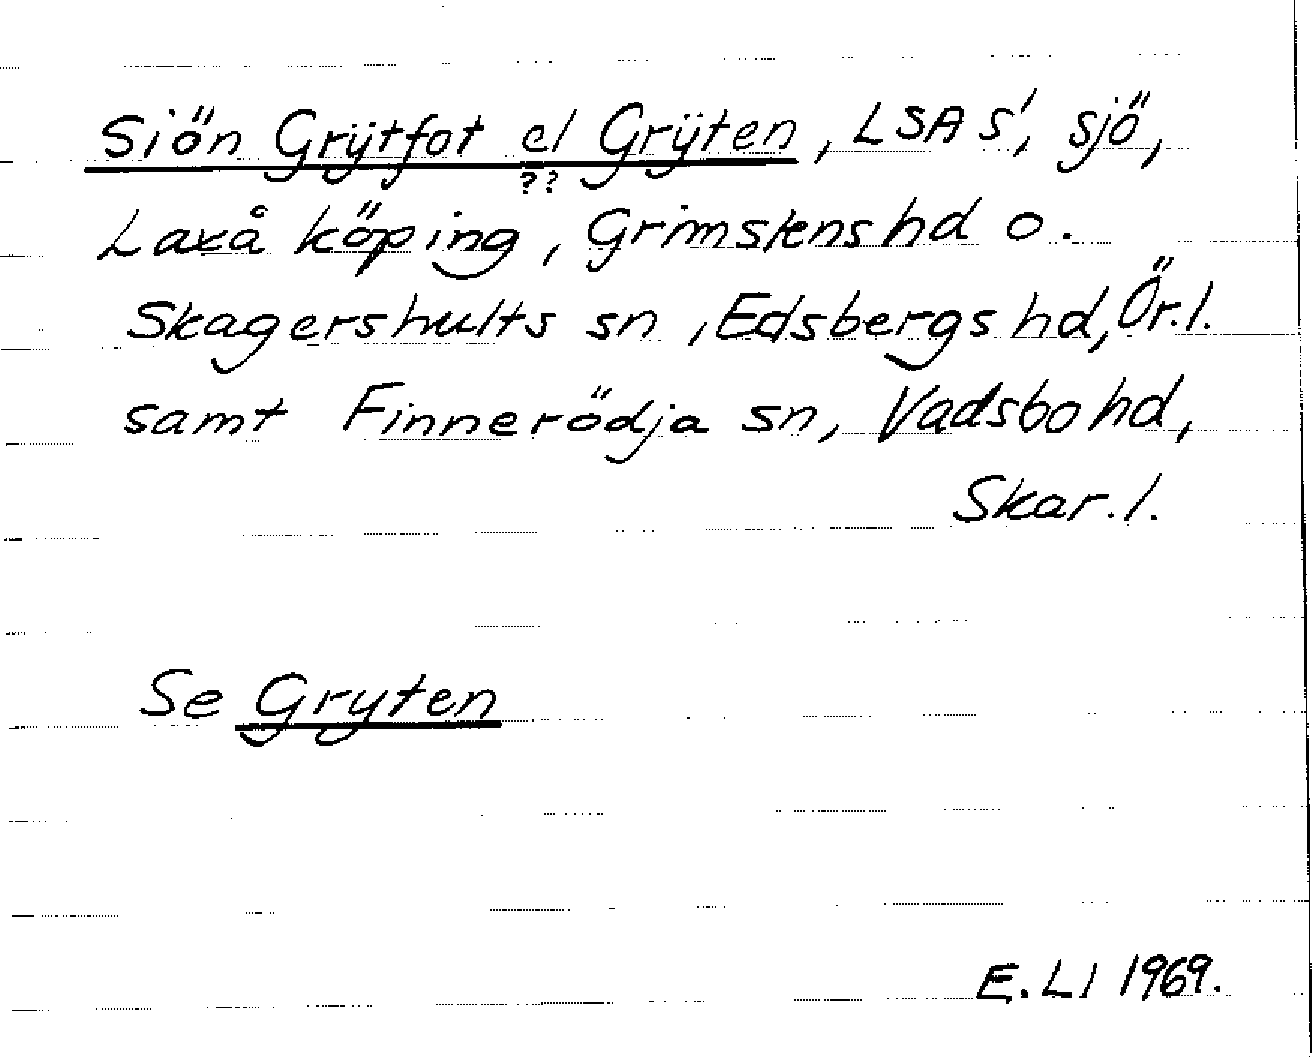 Siön Grÿtfot el Grÿten, LSA S', sjö,
??
Laxå köping, Grimstens hd o.
Skagershults sn, Edsbergs hd, Ör.l.
samt Finnerödja sn, Vadsbo hd,
Skar.l.
Se Gryten
E. LI 1969.